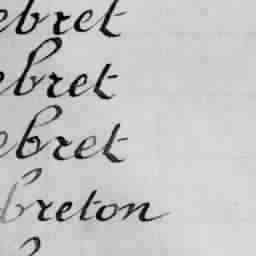 ebret
ebret
ebret
breton